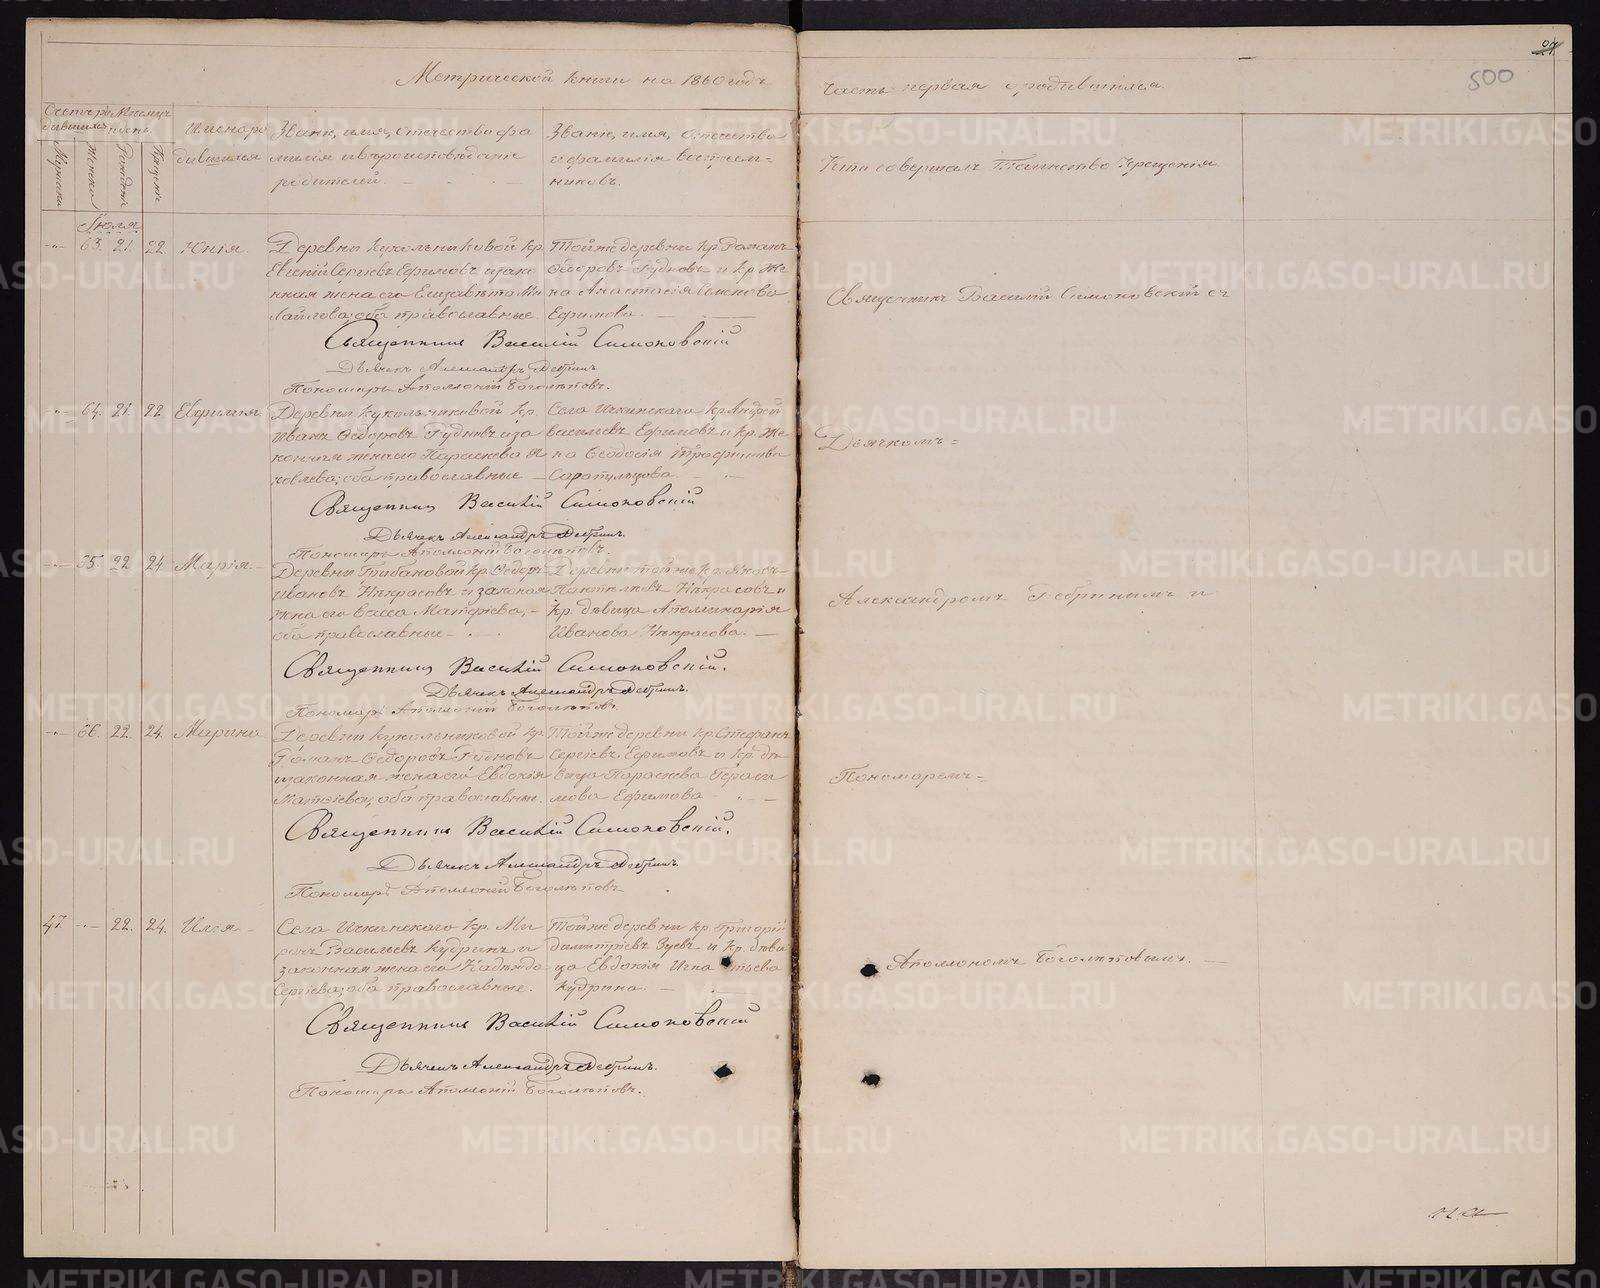 Метрической книги на 1860 годъ
часть первая о родившихся.
500
Счетъ ро
дившихся
Мужеска
Женска
Месяцъ
Рожденія
Крещенія
Имена ро
дившихся
Званіе, имя, отечество фа
милія и вѣроисповѣданіе
родителей.
Званіе, имя, отечество
и фамилія воспріем=
никовъ.
Кто совершалъ Таинство Крещенія
Іюля
63. 21. 22. Юнія.
Деревни Кукольниковой кр.
Евгеній Сергіевъ Ефимовъ и зако
нная жена его Елизавета Ми
хайлова; оба православные.
Той же деревни Кр. Романъ
Ѳедоровъ Рудновъ и кр. Же
на Анастасія Семенова
Ефимова.
Священникъ Василій Симоновскій
Дьячекъ Александръ Дебринъ
Пономарь Аполлоній Боголѣповъ.
64. 21. 22. Евфимія.
Деревни Кукольниковой Кр.
Иванъ Ѳедоровъ Рудновъ и за
конная жена его Параскева Я
ковлева; оба православные
Села Ичкинскаго Кр. Андрей
Васильевъ Ефимовъ и кр. Же
на Ѳеодосія Трофимова
Сарапульцова.
Священникъ Василій Симоновскій
Дьячекъ Александръ Дебринъ.
Пономарь Аполлоній Боголѣповъ.
65. 22. 24. Марія
Деревни Грибановой кр. Ѳедоръ
Ивановъ Некрасовъ и законная
жена его Васса Матфіева,
оба православные
Деревни той же Кр. Яковъ
Пантилѣевъ Некрасовъ и
кр. дѣвица Аполлинарія
Иванова Некрасова.
Священникъ Василій Симоновскій.
Дьячекъ Александръ Дебринъ.
Пономарь Аполлоній Боголѣповъ.
66. 22. 24. Марина
Деревни Кукольниковой Кр.
Романъ Ѳедоровъ Рудновъ
и законная жена его Евдокія
Матвіева, оба православные.
Той же деревни Кр. Стефанъ
Сергіевъ Ефимовъ и кр. дѣ
вица Параскева Гераси
мова Ефимова
Священникъ Василій Симоновскій.
Дьячекъ Александръ Дебринъ.
Пономарь Аполлоній Боголѣповъ
47. 22. 24. Илія
Села Ичкинскаго Кр. Ми
ронъ Васильевъ Кудринъ и
законная жена его Надежда
Сергіева; оба православные.
Той же деревни кр. Григорій
Димитріевъ Зуевъ и Кр. дѣви
ца Евдокія Игнатьева
Кудрина.
Священникъ Василій Симоновскій
Дьячекъ Александръ Дебринъ.
Пономарь Аполлоній Боголѣповъ.
Священникъ Василій Симоновскій съ
Дьячкомъ=
Александромъ Дебринымъ и
Пономаремъ=
Аполлономъ Боголѣповымъ.
METRIKI.GASO-URAL.RU